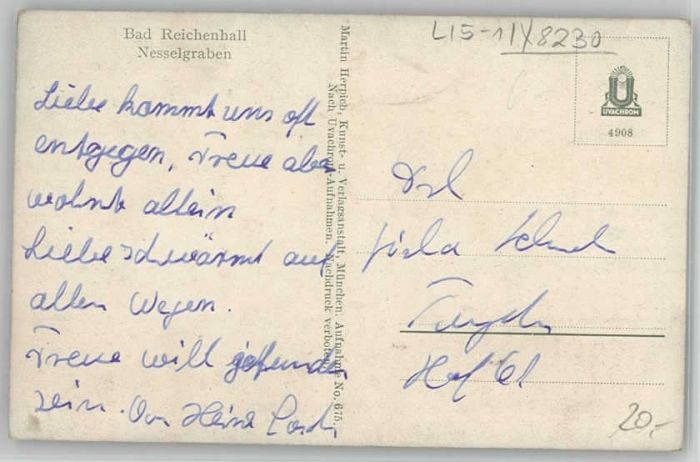 Bad Reichenhall
Nesselgraben
L15-11/8230
UVACHROM
4908
Liebe kommt uns oft
entgegen, Treue aber
wohnt allein
Liebe schwärmt auf
allen Wegen.
Treue will gefunden
sein. Von Heinz
Martin Herpich, Kunst- u. Verlagsanstalt, München. Aufnahme No. 675.
Nach Uvachrom-Aufnahmen. Nachdruck verboten.
Frl
20,-